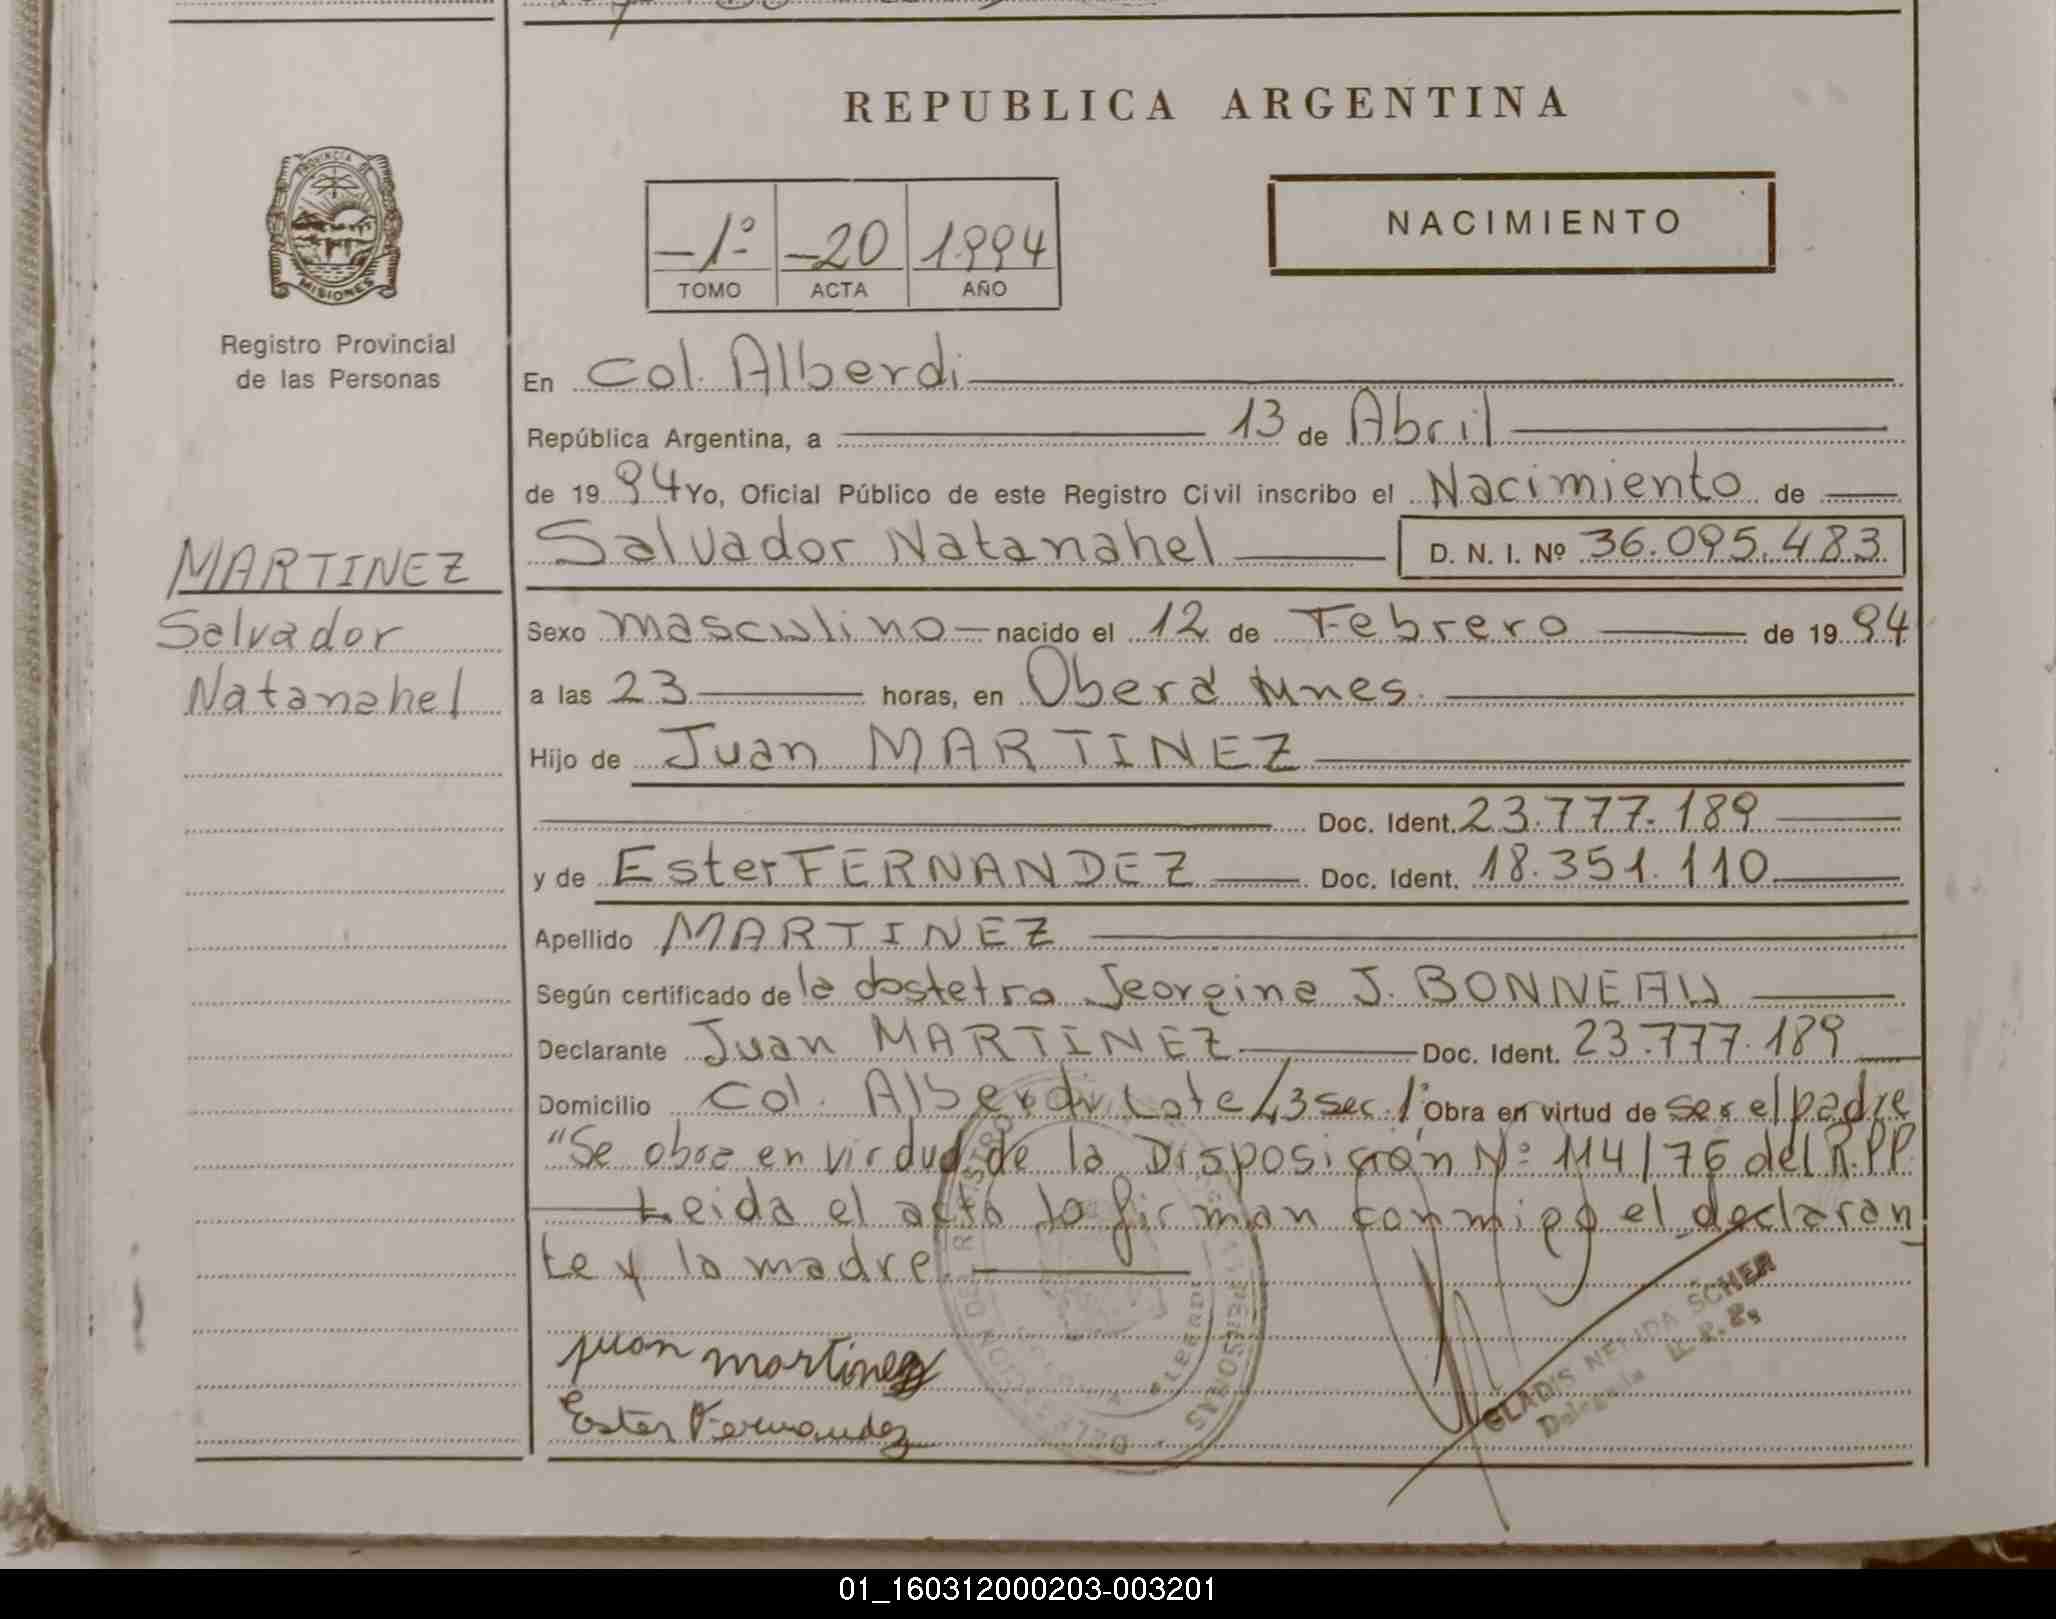 REPUBLICA ARGENTINA
PROVINCIA DE
MISIONES
Registro Provincial
de las Personas
-1º- -20 1994
TOMO ACTA AÑO
NACIMIENTO
En Col. Alberdi
República Argentina, a 13 de Abril
de 1994 Yo, Oficial Público de este Registro Civil inscribo el Nacimiento de
Salvador Natanahel D. N. I. Nº 36.095.483
MARTINEZ
Salvador
Natanahel
Sexo masculino nacido el 12 de Febrero de 1994
a las 23 horas, en Oberá Mnes.
Hijo de Juan MARTINEZ
Doc. Ident. 23.777.189
y de Ester FERNANDEZ Doc. Ident. 18.351.110
Apellido MARTINEZ
Según certificado de la obstetra Jeorgina J. BONNEAU
Declarante Juan MARTINEZ Doc. Ident. 23.777.189
Domicilio Col. Alberdi Lote 43 sec. 1º Obra en virtud de ser el padre
"Se obra en virdud de la Disposición Nº 114/76 del R.P.P.
Leida el acta la firman conmigo el declaran
te y la madre.
juan martinez
Ester Fernandez
GLADIS NELIDA SCHER
Delegada R. P. P.
01_160312000203-003201